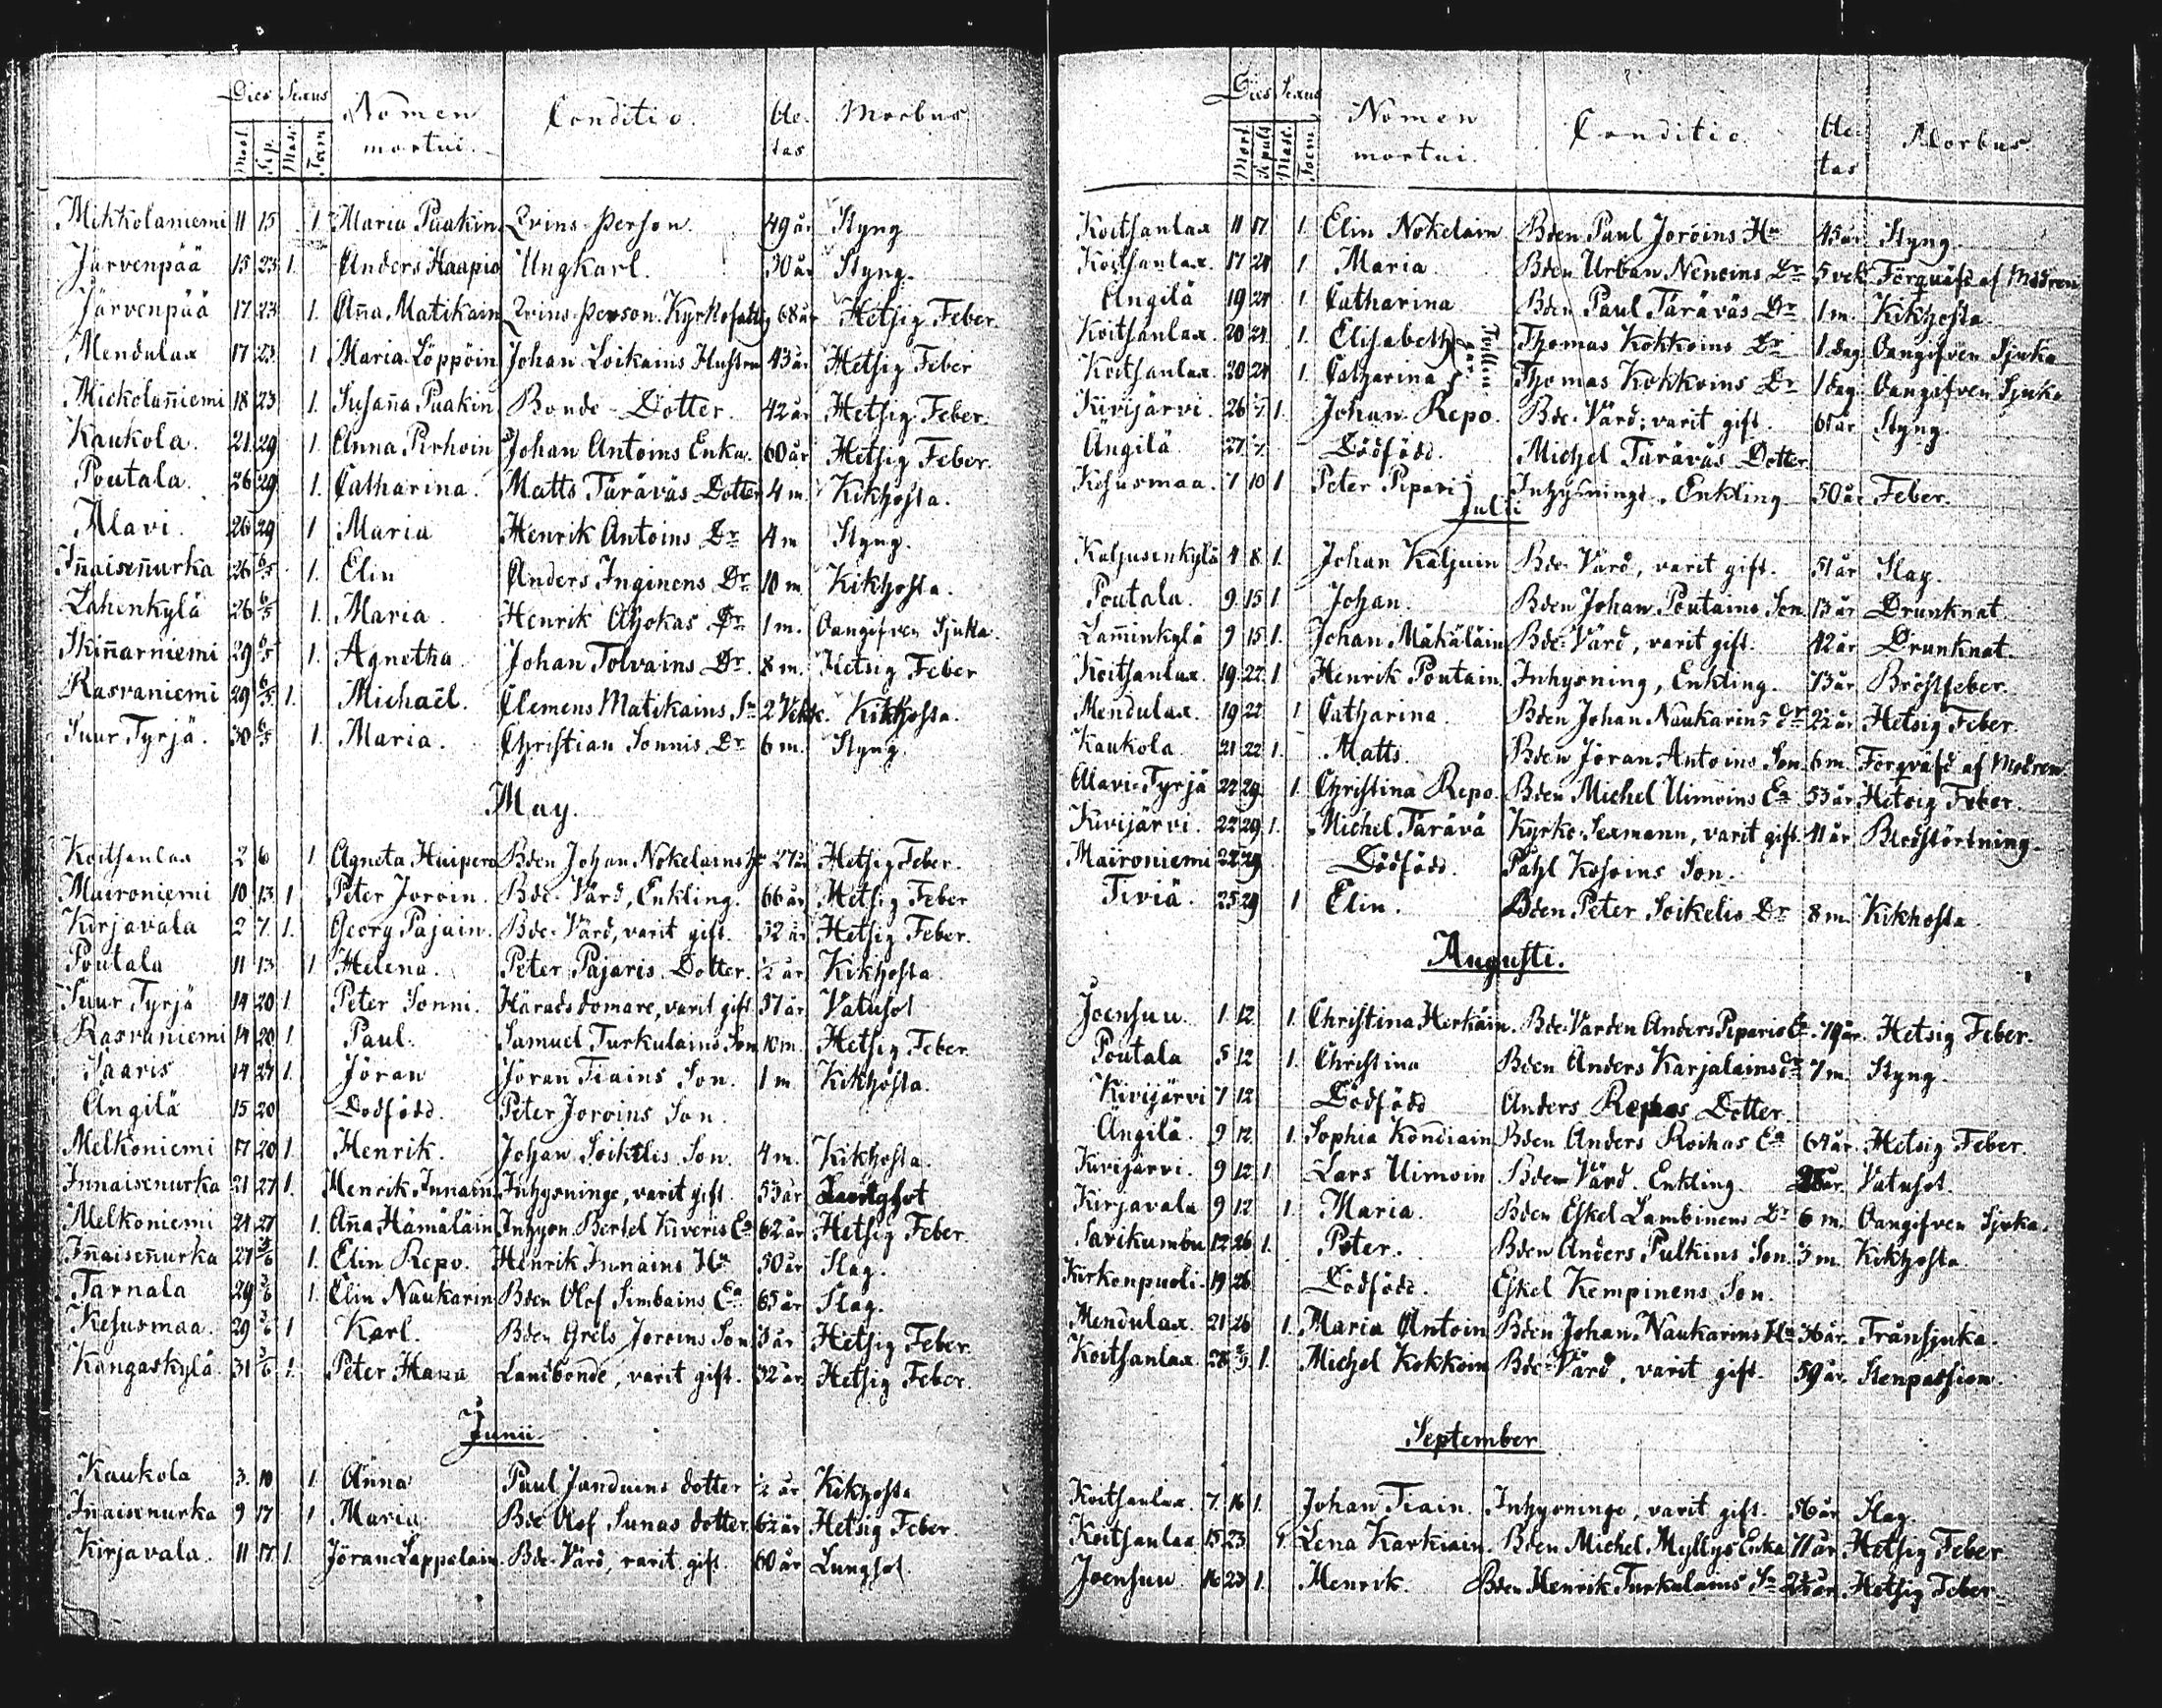 Dies Sexus Nomen mortui. Conditio. Ae-tas Morbus
Mort. Sep. Masc. Foem
Mikkolaniemi 11 15 1 Maria Paakin Qvins Person. 49 år Styng
Järvenpää 15 23 1. Anders Haapio Ungkarl. 30 år Styng.
Järvenpää 17 23 1 Anna Matikain Qvins Person. Kyrkofattig 68 år Hetsig Feber.
Mendulax 17 23 1 Maria Löppöin Johan Loikains Hustru 43 år Hetsig Feber
Mickolan̄iemi 18 23 1. Susan̄a Paakin Bonde-Dotter. 42 år Hetsig Feber.
Kaukola. 21 29 1 Anna Pirhoin Johan Antoins Enka. 60 år Hetsig Feber.
Poutala. 26 29 1. Catharina. Matts Täräväs Dotter 4 m. Kikhosta.
Alavi. 26 29 1 Maria Henrik Antoins Dr 4 m Styng.
In̄aisen̄urka 26 6/5 1. Elin Anders Inginens Dr 10 m. Kikhosta.
Lahenkylä 26 6/5 1. Maria. Henrik Ahokas Dr 1 m. Oangifven Sjuka.
Skin̄arniemi 29 6/5 1. Agnetha. Johan Tolvains Dr. 8 m. Hetsig Feber
Rasvaniemi 29 6/5 1. Michaël. Clemens Matikains Sn 2 Vekk. Kikhosta.
Suur Tyrjä. 30 6/5 1. Maria. Christian Sonnis Dr 6 m. Styng.
May.
Koitsanlax 2 6 1 Agneta Huipero Bden Johan Nokelains Ha 27 år Hetsig Feber.
Maironiemi 10 13 1 Peter Joroin. Bde-Värd, Enkling. 66 år Hetsig Feber
Kirjavala 2 7. 1. Georg Pajain. Bde-Värd, varit gift. 52 år Hetsig Feber.
Poutala 11 13 1 Helena. Peter Pajaris Dotter. ½ år Kikhosta.
Suur Tyrjä 14 20 1 Peter Sonni. Häradsdomare, varit gift 57 år Vatusot
Rasvaniemi 14 20 1. Paul. Samuel Turkulains Son 10 m. Hetsig Feber.
Saaris 14 27 1. Jöran Jöran Tiains Son. 1 m. Kikhosta.
Angilä 15 20 Dödfödd. Peter Joroins Son.
Melkoniemi 17 20 1. Henrik. Johan Soikelis Son. 4 m. Kikhosta.
Innaisenurka 21 27 1. Henrik Innain Inhysninge, varit gift. 53 år Lungsot
Melkoniemi 24 27 1. An̄a Hämäläin Inhysn. Bertel Kiveris Ea 62 år Hetsig Feber.
In̄aisen̄urka 27 3/6 1. Elin Repo. Henrik Innains Ha 50 år Slag.
Tarnala 29 3/6 1. Elin Naukarin Bden Olof Simbains Ea 65 år Slag.
Kesusmaa. 29 3/6 1 Karl. Bden Grels Joroins Son 3 år Hetsig Feber.
Kangaskylä 31 3/6 1. Peter Hana Landbonde, varit gift. 32 år Hetsig Feber.
Junii.
Kaukola 3. 10 1. Anna Paul Janduins dotter ½ år Kikhosta
In̄aisenurka 9 17 1 Maria Bde Olof Sunas dotter 62 år Hetsig Feber.
Kirjavala. 11 17 1. Jöran Lappalain. Bde-Värd, varit gift. 60 år Lungsot.
Dies Sexus Nomen mortui. Conditio. Ae-tas Morbus.
Mort. Sepult Masc. Foem
Koitsanlax 11 17 1. Elin Nokelain Bden Paul Joroins Ha 45 år Styng.
Koitsanlax. 17 24 1 Maria. Bden Urban Nenoins Dr 5 vek Förquäfd af Modren
Angilä 19 24 1 Catharina Bden Paul Täräväs Dr 1 m. Kikhosta.
Koitsanlax. 20 24 1. Elisabeth Thomas Kokkoins Dr 1 dag Oangifven Sjuka
Koitsanlax. 20 24 1. Catharina Thomas Kokkoins Dr 1 dag. Oangifven Sjuka
Kivijärvi. 26 1. Johan Repo. Bde-Värd; varit gift. 61 år Styng.
Ängilä 27 Dödfödd. Michel Tärävás Dotter.
Kesusmaa. 7 10 1 Peter Pipari Inhysninge, Enkling 50 år Feber.
Julii
Kaljusenkylä 4 8 1. Johan Kaljuin Bde-Värd, varit gift. 51 år Slag.
Poutala. 9 15 1 Johan. Bden Johan Poutains Son 13 år Drunknat
Lam̄inkylä 9 15 1. Johan Mäkäläin Bde-Värd, varit gift. 42 år Drunknat.
Koitsanlax. 19 22 1 Henrik Poutain Inhysning, Enkling. 73 år Bröstfeber.
Mendulax. 19 22 1 Catharina. Bden Johan Naukarins dr 22 år Hetsig Feber.
Kaukola. 21 22 1. Matts. Bden Jöran Antoins Son. 6 m. Förqvafd af Modren
Alavi-Tyrjä 22 29. 1. Christina Repo. Bden Michel Uimoins Ea 53 år Hetsig Feber.
Kivijärvi. 22 29 1. Michel Tärävä Kyrko-Sexmann, varit gift. 41 år Blodstörtning.
Maironiemi 22 29 Dödfödd. Påhl Kosoins Son.
Tiviä. 25 29 1 Elin. Bden Peter Soikelis Dr 8 m. Kikhosta
Augusti.
Joensuu. 1. 12 1. Christina Herkäin. Bde-Värden Anders Piparis Ea. 79 år. Hetsig Feber.
Poutala 5 12 1. Christina Bden Anders Karjalains dr 7 m. Styng.
Kivijärvi 7 12 Dödfödd Anders Repos Dotter.
Ängilä. 9 12. 1. Sophia Kondiain Bden Anders Roihas Ea 64 år. Hetsig Feber.
Kivijärvi. 9 12 1 Lars Uimoin Bden Värd. Enkling år. Vatusot.
Kirjavala 9 12 1. Maria. Bden Eskel Lambinens Dr 6 m. Oangifven Sjuka.
Sarikumbu 12 26 1. Peter. Bden Anders Pulkins Son. 3 m. Kikhosta.
Kirkonpuoli. 19 26 Dödfödd. Eskel Kempinens Son.
Mendulax. 21 26 1. Maria Antoin Bden Johan Naukarins Ha 36 år. Trånsjuka.
Koitsanlax 28 1. Michel Kokkoin Bde-Värd, varit gift. 59 år. Stenpassion.
September
Koitsanlax. 7. 16 1. Johan Tiain. Inhysninge, varit gift. 56 år Slag.
Koitsanlax 15 23 1. Lena Karkiain. Bden Michel Myllys Enka 71 år Hetsig Feber
Joensuu 16 23 1. Henrik. Bden Henrik Turkulains Sn år. Hetsig Feber